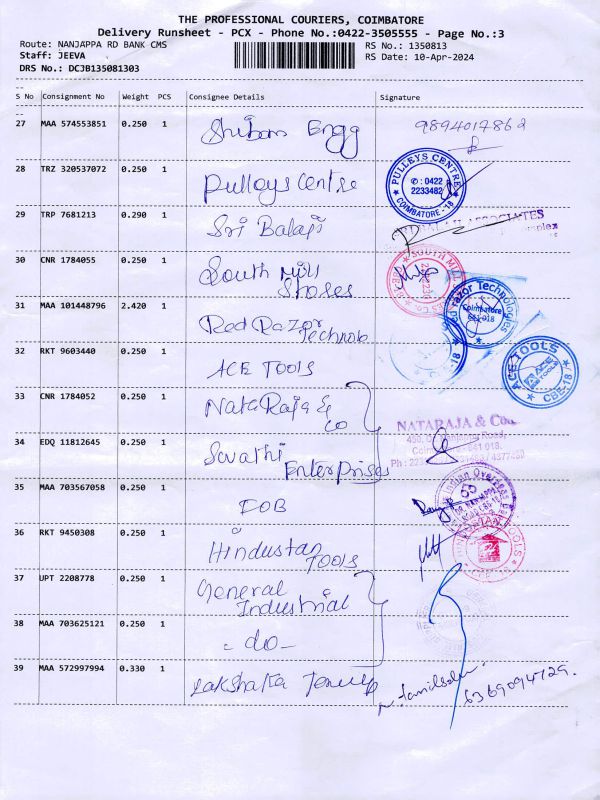 THE PROFESSIONAL COURIERS, COIMBATORE
Delivery Runsheet - PCX - Phone No.:0422-3505555 - Page No.:3
Route: NANJAPPA RD BANK CMS
RS No.: 1350813
Staff: JEEVA
RS Date: 10-Apr-2024
DRS No.: DCJB135081303
S No Consignment No Weight PCS Consignee Details Signature
27 MAA 574553851 0.250 1 Engg 9894017862
28 TRZ 320537072 0.250 1 Pulleys Centre
PULLEYS CENTRE
✆ : 0422
2233482
COIMBATORE-18
29 TRP 7681213 0.290 1 Sri Balaji
ASSOCIATES
30 CNR 1784055 0.250 1 South Mill
Stores
SOUTH
31 MAA 101448796 2.420 1 Red Razor
Technolo
Red razor Technologies
Coimbatore
641 018
32 RKT 9603440 0.250 1 ACE TOOLS
ACE TOOLS
CBE-18
33 CNR 1784052 0.250 1 Nataraja &
co
NATARAJA & Co
34 EDQ 11812645 0.250 1 Swathi
Enterprises
35 MAA 703567058 0.250 1 IOB
Indian Overseas
36 RKT 9450308 0.250 1 Hindustan
TOOLS
37 UPT 2208778 0.250 1 General
Industrial
38 MAA 703625121 0.250 1 - do -
39 MAA 572997994 0.330 1 6369094729.